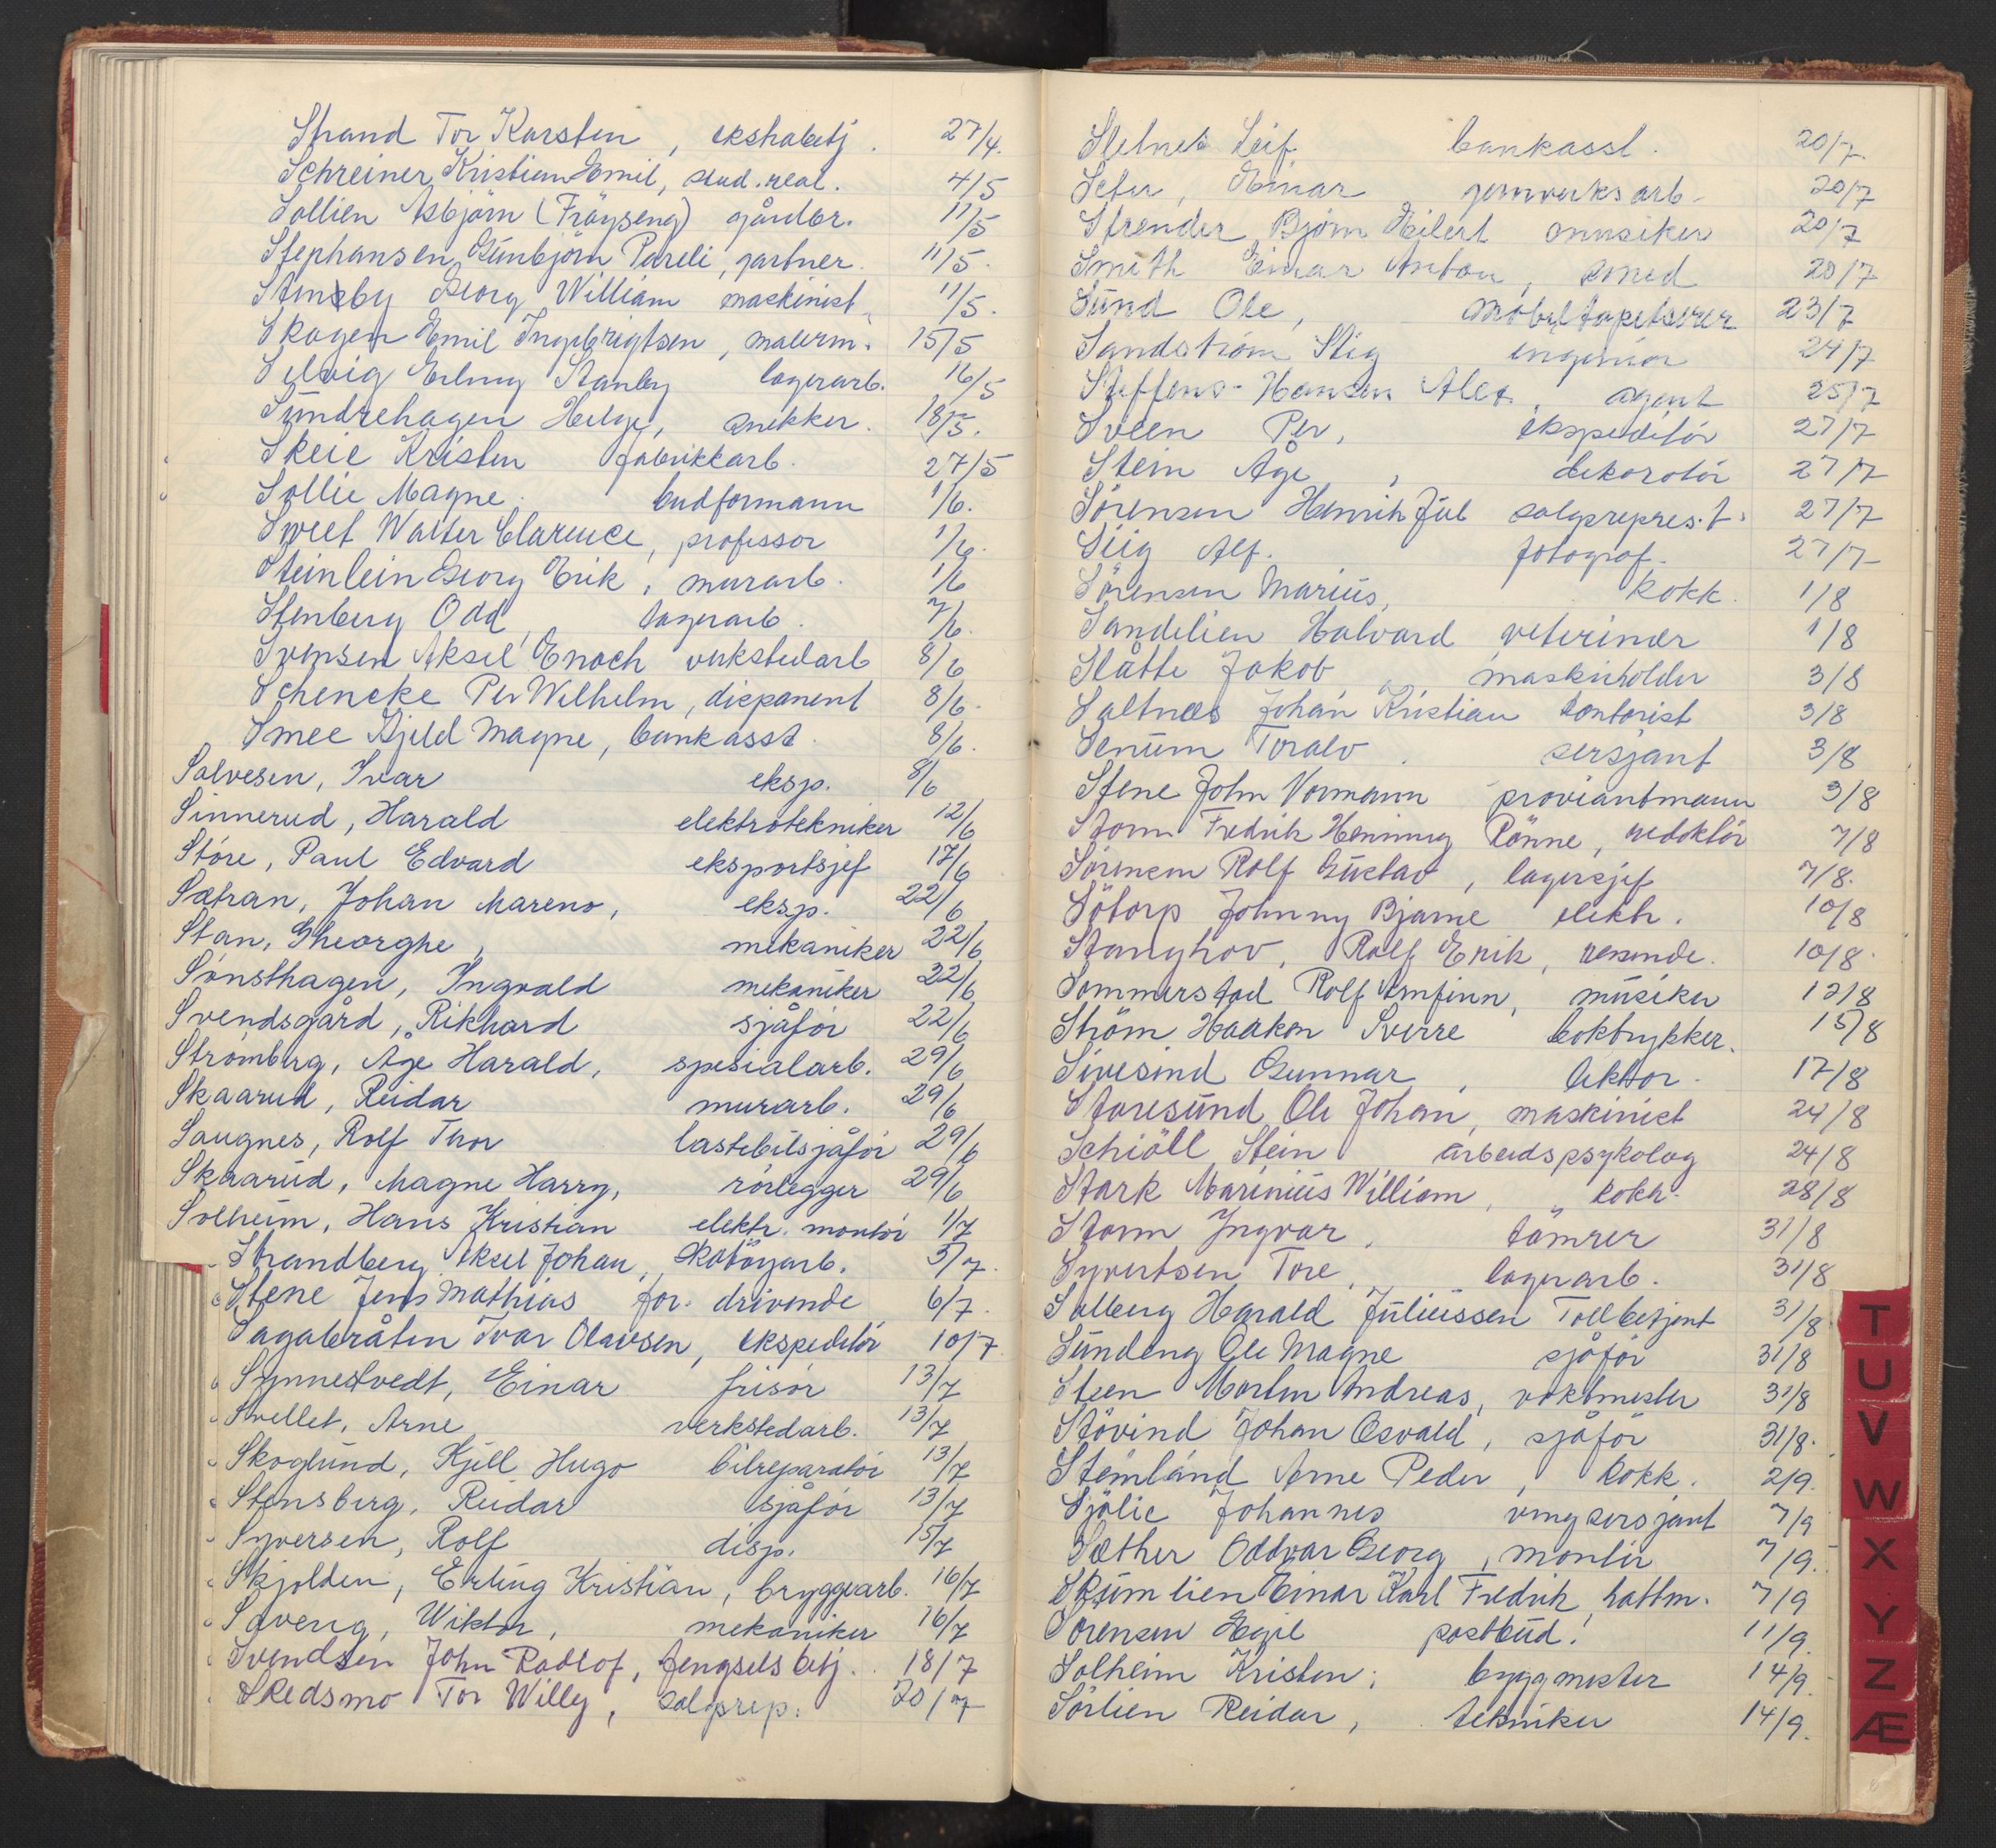 Strand Tor Karsten, ekstrabetj. 27/4.
Schreiner Kristian Emil, stud. real. 4/5
Sollien Asbjørn (Frøyseng) gårdbr. 11/5
Stephansen Gunbjørn Pareli, gartner. 11/5.
Stensby Georg William maskinist. 11/5.
Skogen Emil Ingebrigtsen, malerm. 15/5
Selvig Erling Stanley lagerarb. 16/5
Sundrehagen Helge, snekker. 18/5.
Skeie Kristen fabrikkarb. 27/5
Sollie Magne. budformann 1/6.
Sweet Walter Clarence, professor 1/6.
Steinlein Georg Erik, murarb. 1/6
Stenberg Odd, lagerarb. 7/6.
Svensen Aksel Enoch verkstedarb 8/6
Schencke Per Wilhelm, disponent 8/6.
Smee Kjeld Magne, bankasst. 8/6.
Salvesen, Ivar eksp. 8/6
Sinnerud, Harald elektrotekniker 12/6
Støre, Paul Edvard eksportsjef 17/6
Sætran, Johan Mareno, eksp. 22/6
Stan, Gheorghe, mekaniker 22/6
Sønsthagen, Ingvald mekaniker 22/6
Svendsgård, Rikhard sjåfør 22/6
Strømberg, Åge Harald, spesialarb. 29/6
Skaarud, Reidar murarb. 29/6
Saugnes, Rolf Thor lastebilsjåfør 29/6
Skaarud, Magne Harry, rørlegger 29/6
Solheim, Hans Kristian elektr. montør 1/7
Strandberg Aksel Johan, skotøyarb. 3/7.
Stene Jens Mathias for. drivende 6/7.
Sagabråten Ivar Olavsen, ekspeditør 10/7
Synnestvedt, Einar frisør 13/7
Svellet, Arne verkstedarb. 13/7
Skoglund, Kjell Hugo bilreparatør 13/7
Stensberg, Reidar sjåfør 13/7
Syversen, Rolf disp. 15/7
Skjolden, Erling Kristian, bryggearb. 16/7
Saverig, Wiktor, mekaniker 16/7
Svendsen John Rodlof, fengselsbetj. 18/7
Skedsmo Tor Willy, salgsrep. 20/7
Sletnes Leif bankasst. 20/7.
Seter, Einar jernverksarb. 20/7
Strender Bjørn Heilert musiker 20/7
Smith Einar Anton, smed 20/7
Sund Ole, møbeltapetserer 23/7
Sandstrøm Stig ingeniør 24/7
Steffens-Hansen Alex, agent 25/7
Sveen Per, ekspeditør 27/7
Stein Åge, dekoratør 27/7
Sørensen Henrik Jul salgsrepres.t. 27/7
Siig Alf. fotograf. 27/7
Sørensen Marius, kokk. 1/8
Sandelien Halvard veterinær 1/8
Slåtte Jakob, maskinholder 3/8
Saltnes Johan Kristian kontorist 3/8
Senum Toralv. sersjant 3/8
Stene John Normann proviantmann 3/8
Storm Fredrik Henning Rønne, redaktør 7/8
Sørensen Rolf Gustav, lagersjef 7/8.
Søtorp Johnny Bjarne elektr. 10/8
Stanghov, Rolf Erik, reisende. 10/8.
Sommerstad Rolf Arnfinn, musiker 12/8
Strøm Haakon Sverre boktrykker. 15/8
Sivesind Gunnar, lektor. 17/8
Staresund Ole Johan, maskinist 24/8
Schiøll Stein arbeidspsykolog 24/8
Stark Marinius William, kokk. 28/8
Storm Ingvar, tømrer 31/8
Syvertsen Tore, lagerarb. 31/8
Solberg Harald Juliussen Tollbetjent 31/8
Sundeng Ole Magne sjåfør 31/8
Steen Morten Andreas, vaktmester 31/8
Støvind Johan Osvald, sjåfør 31/8.
Stemland Arne Peder, kokk. 2/9.
Sjølie Johannes vingsersjant 7/9
Sæther Oddvar Georg, montør 7/9.
Skumlien Einar Karl Fredrik, hattm. 7/9
Sørensen Egil postbud. 11/9.
Solheim Kristen, byggmester 14/9.
Sørlien Reidar, tekniker 14/9.
T
U
V
W
X
Y
Z
Æ